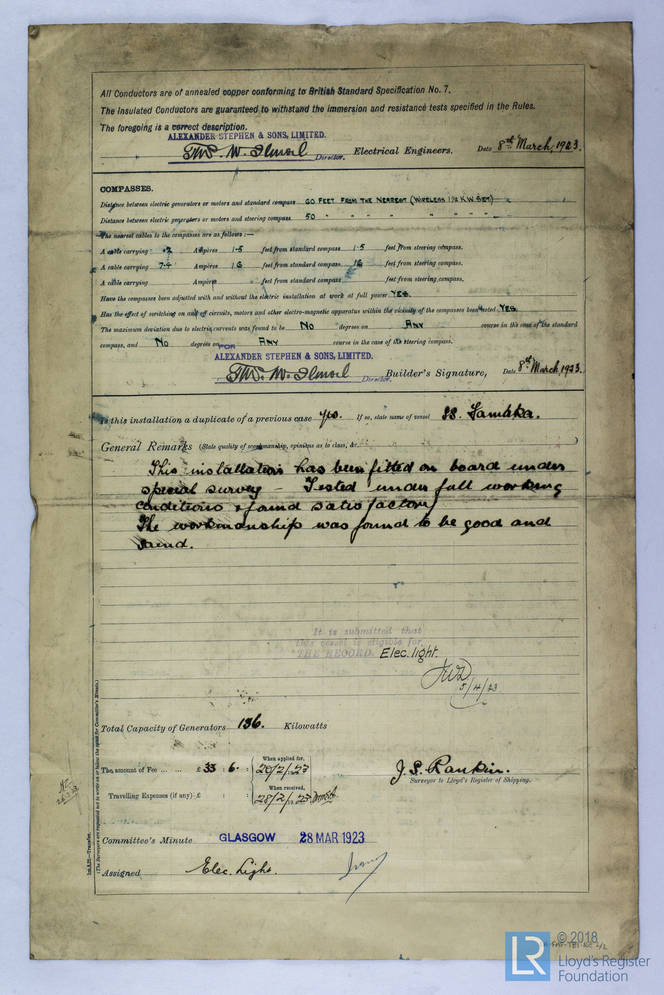 All Conductors are of annealed copper conforming to British Standard Specification No. 7.
The Insulated Conductors are guaranteed to withstand the immersion and resistance tests specified in the Rules.
The foregoing is a correct description.
ALEXANDER STEPHEN & SONS, LIMITED.
Director. Electrical Engineers. Date 8th March, 1923.
COMPASSES.
Distance between electric generators or motors and standard compass 60 FEET FROM THE NEAREST (WIRELESS 1½ K.W SET)
Distance between electric generators or motors and steering compass 50 " " " " " " "
The nearest cables to the compasses are as follows:—
A cable carrying ·2 Ampères 1·5 feet from standard compass 1·5 feet from steering compass.
A cable carrying 7·4 Ampères 16 feet from standard compass 16 feet from steering compass.
A cable carrying Ampères feet from standard compass feet from steering compass.
Have the compasses been adjusted with and without the electric installation at work at full power YES.
Has the effect of switching on and off circuits, motors and other electro-magnetic apparatus within the vicinity of the compasses been tested YES.
The maximum deviation due to electric currents was found to be No degrees on Any course in the case of the standard
compass, and No degrees on FOR Any course in the case of the steering compass.
ALEXANDER STEPHEN & SONS, LIMITED.
Director. Builder's Signature, Date 8th March, 1923.
Is this installation a duplicate of a previous case yes. If so, state name of vessel SS.
General Remarks (State quality of workmanship, opinions as to class, &c.
This installation has been fitted on board under
special survey – Tested under full working
conditions & found satisfactory
The workmanship was found to be good and
sound.
It is submitted that
this vessel is eligible for
THE RECORD. Elec. light.
5/4/23
Total Capacity of Generators 136. Kilowatts
The amount of Fee ... ... £ 33 : 6 : When applied for, 20/2/23
Travelling Expenses (if any) £ : : When received, 28/2/23
J. S. Rankin.
Surveyor to Lloyd's Register of Shipping.
Committee's Minute GLASGOW 28 MAR 1923
Assigned Elec. Light.
(The Surveyors are requested not to write on or below the space for Committee's Minute.)
© 2018
Lloyd's Register
Foundation
LR